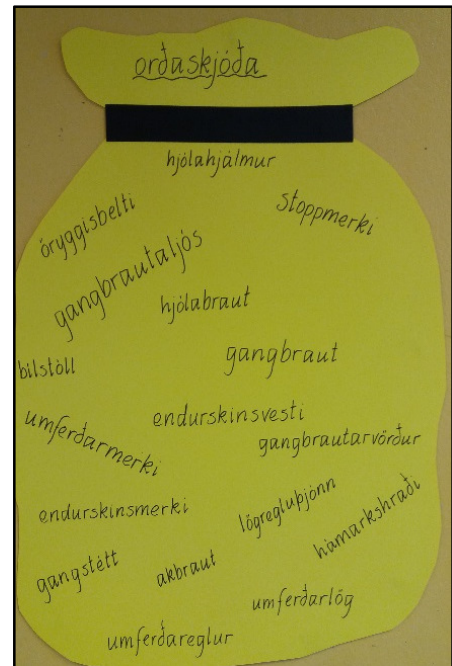 orðaskjóða
hjólahjálmur
öryggisbelti
stoppmerki
gangbrautaljós
hjólabraut
gangbraut
bílstóll
endurskinsvesti
umferðarmerki
gangbrautarvörður
endurskinsmerki
lögregluþjónn
hámarkshraði
gangstétt
akbraut
umferðarlög
umferðareglur